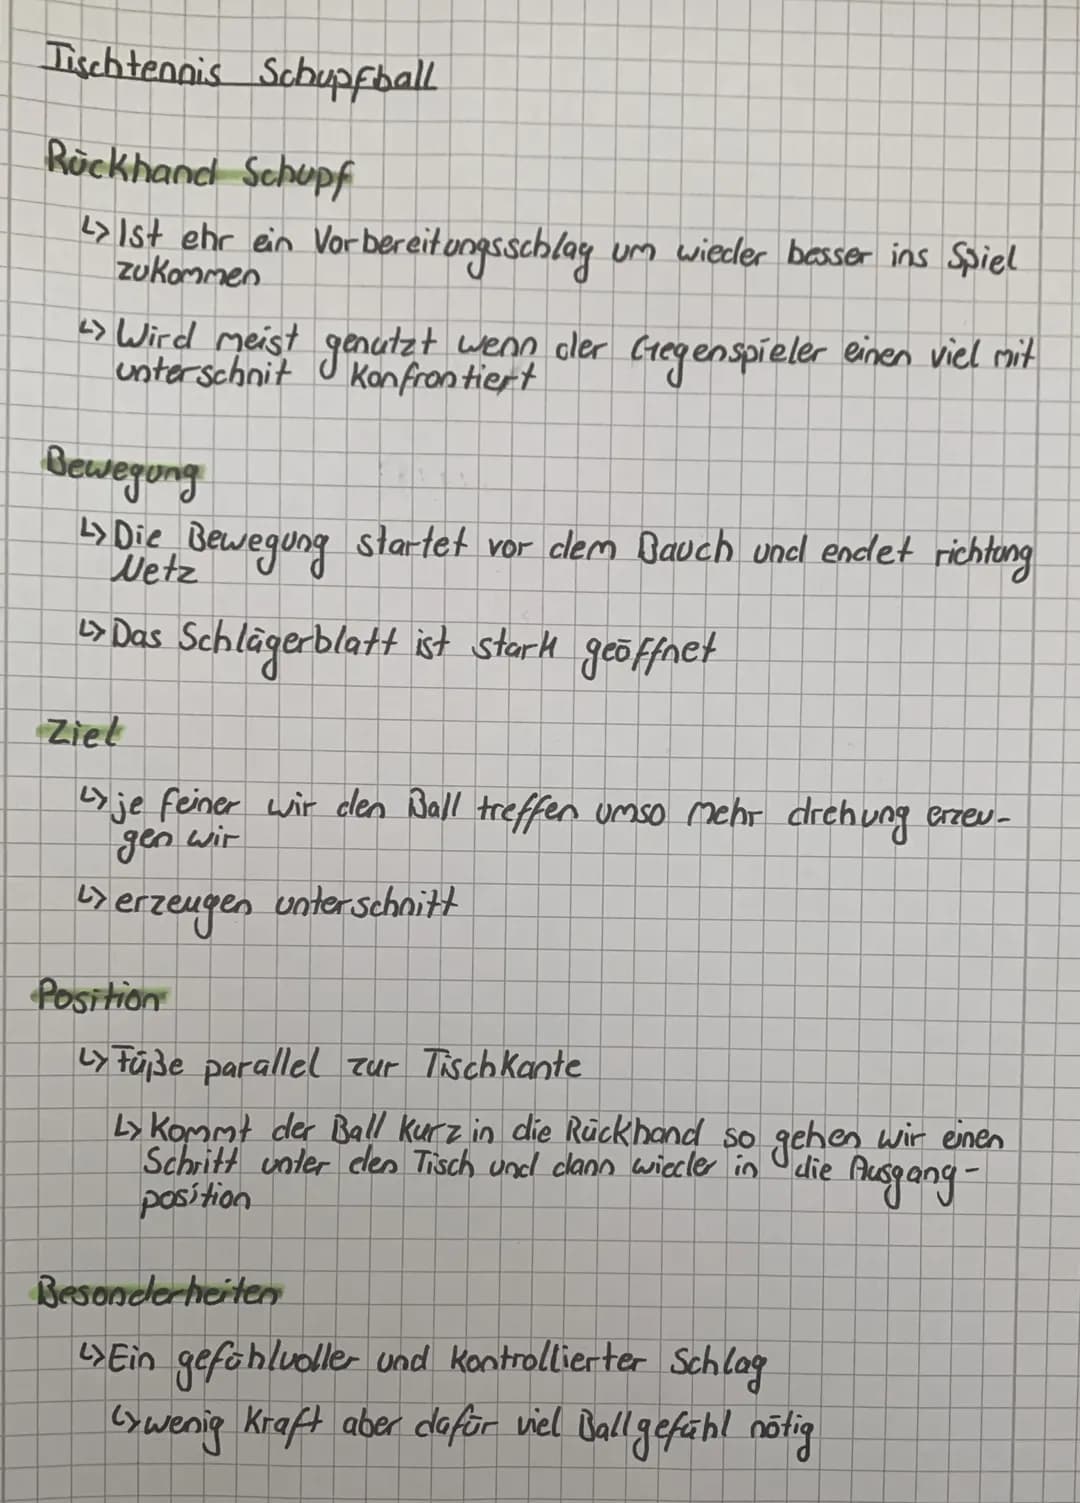 Tischtennis Schupfball
Rückhand Schupf
↳ Ist ehr ein Vorbereitungsschlag um wieder besser ins Spiel
zukommen
↳ Wird meist genutzt wenn der Gegenspieler einen viel mit
unterschnit konfrontiert
Bewegung
↳ Die Bewegung startet vor dem Bauch und endet richtung
Netz
↳ Das Schlägerblatt ist stark geöffnet
Ziel
↳ je feiner wir den Ball treffen umso mehr drehung erzeu-
gen wir
↳ erzeugen unterschnitt
Position
↳ Füße parallel zur Tischkante
↳ Kommt der Ball kurz in die Rückhand so gehen wir einen
Schritt unter den Tisch und dann wieder in die Ausgang-
position
Besonderheiten
↳ Ein gefühlvoller und kontrollierter Schlag
↳ wenig Kraft aber dafür viel Ballgefühl nötig